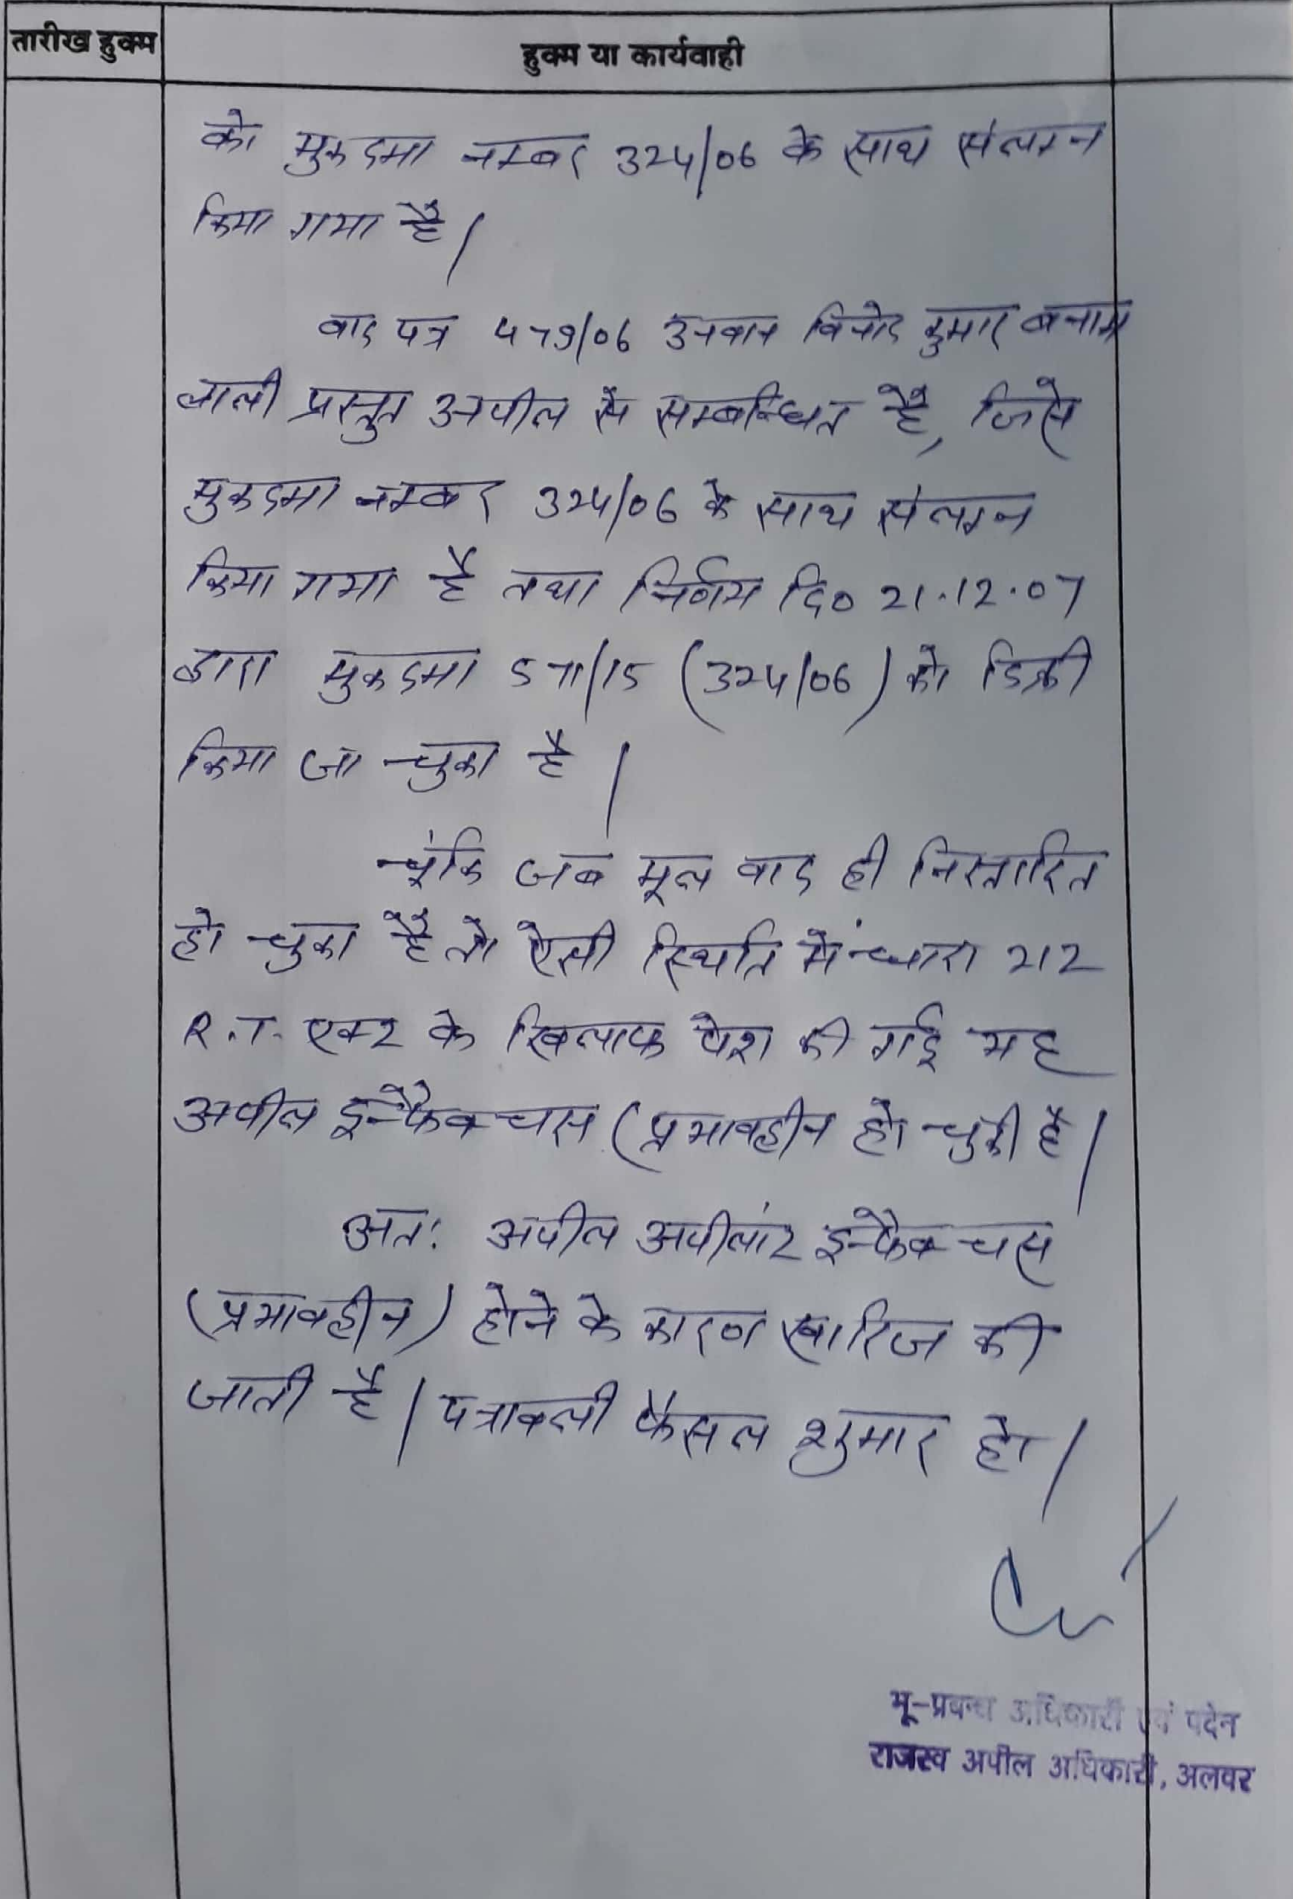 तारीख हुक्म
हुक्म या कार्यवाही
को मुकदमा नम्बर 324/06 के साथ संलग्न
किया गया है।
वाद पत्र 479/06 उनवान विनोद कुमार बनाम
लाली प्रस्तुत अपील से सम्बन्धित है, जिसे
मुकदमा नम्बर 324/06 के साथ संलग्न
किया गया है तथा निर्णय दि० 21.12.07
द्वारा मुकदमा 571/15 (324/06) को डिक्री
किया जा चुका है।
चूंकि जब मूल वाद ही निस्तारित
हो चुका है तो ऐसी स्थिति में धारा 212
R.T. एक्ट के खिलाफ पेश की गई यह
अपील इन्फैक्चस (प्रभावहीन हो चुकी है।
अत: अपील अपीलांट इन्फैक्चस
(प्रभावहीन) होने के कारण खारिज की
जाती है। पत्रावली फैसल शुमार हो।
भू-प्रबन्ध अधिकारी एवं पदेन
राजस्व अपील अधिकारी, अलवर